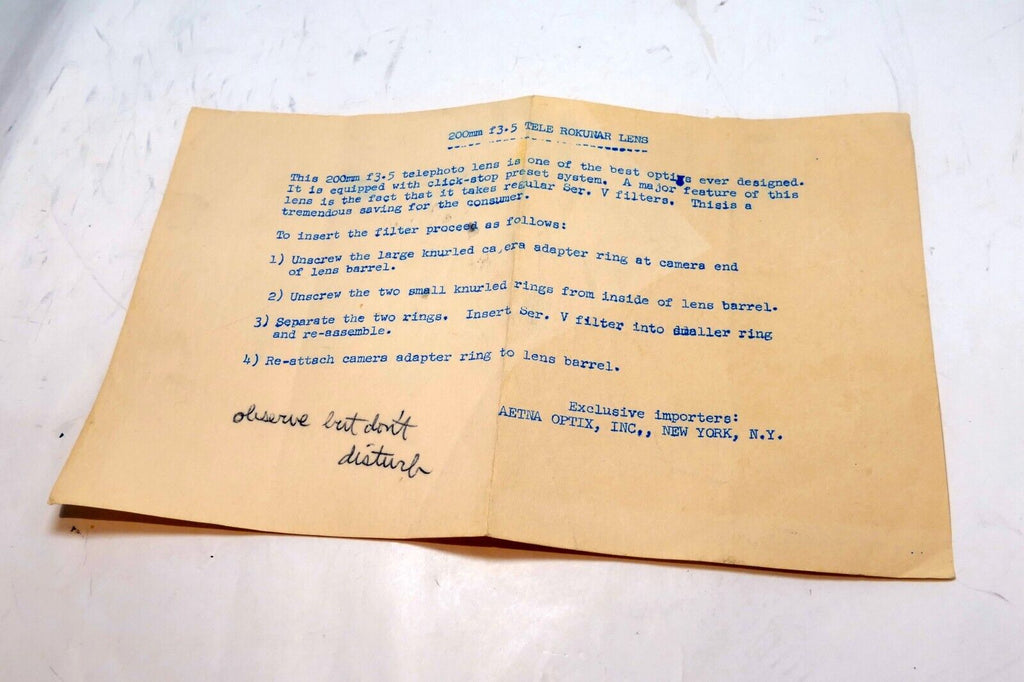 200mm f3.5 TELE ROKUNAR LENS
This 200mm f3.5 telephoto lens is one of the best optics ever designed.
It is equipped with click-stop preset system. A major feature of this
lens is the fact that it takes regular Ser. V filters. Thisis a
tremendous saving for the consumer.
To insert the filter proceed as follows:
1) Unscrew the large knurled ca,era adapter ring at camera end
of lens barrel.
2) Unscrew the two small knurled rings from inside of lens barrel.
3) Separate the two rings. Insert Ser. V filter into smaller ring
and re-assemble.
4) Re-attach camera adapter ring to lens barrel.
Exclusive importers:
AETNA OPTIX, INC,, NEW YORK, N.Y.
observe but don't
disturb